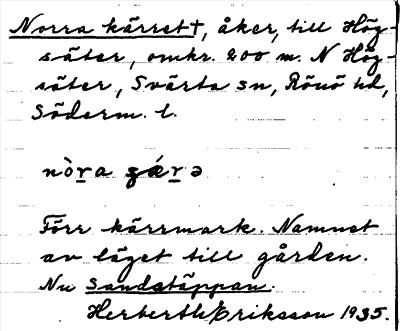 Norra kärret †, åker, till Hög-
säter, omkr. 200 m. N Hög-
säter, Svärta sn, Rönö hd,
Söderm. l.
nòr̲a çǽr̲ə
Förr kärrmark. Namnet
av läget till gården.
Nu Sandstäppan.
Herberth Eriksson 1935.